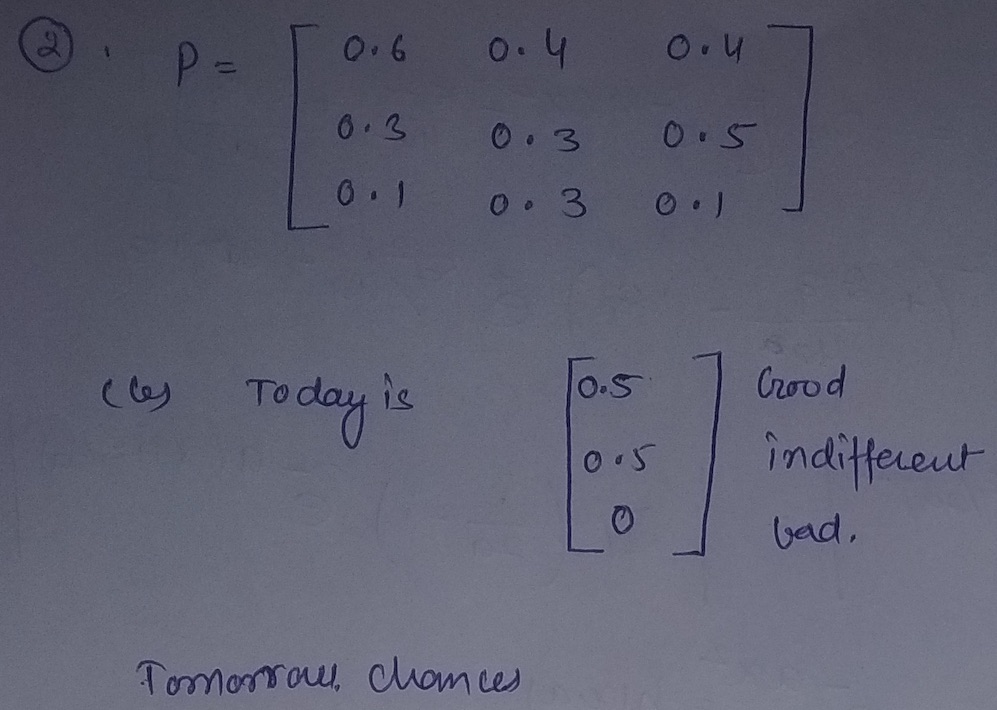 ② . P = [ 0.6 0.4 0.4
0.3 0.3 0.5
0.1 0.3 0.1 ]
(b) Today is [ 0.5 Good
0.5 indifferent
0 ] bad.
Tomorrow chances